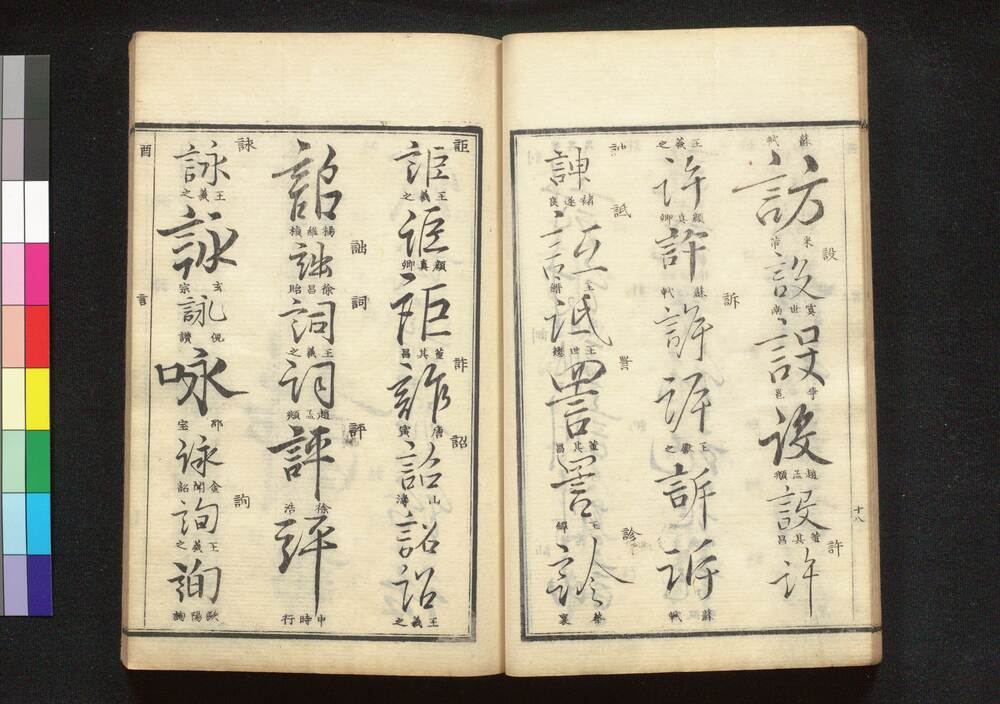 蘇軾 訪 米芾 設 設 虞世南 設 李邕 設 趙孟頫 設 董其昌 許 許
王羲之 許 顏真卿 許 蘇軾 許 訴 訴 王獻之 訴 訴 蘇軾
訷 褚遂良 詆 詆 王 詆 王世懋 詈 詈 董其昌 詈 王 診 診 蔡襄
十八
詎 詎 王羲之 詎 顏真卿 詎 董其昌 詐 詐 唐寅 詔 詔 山濤 詔 詔 王羲之
詔 楊維楨 詘 詘 徐昌 詞 詞 王羲之 詞 趙孟頫 評 評 徐浩 評 申時行
詠 詠 王羲之 詠 玄宗 詠 倪瓚 咏 邵宝 詠 詢 詢 王羲之 詢 歐陽詢
酉 言